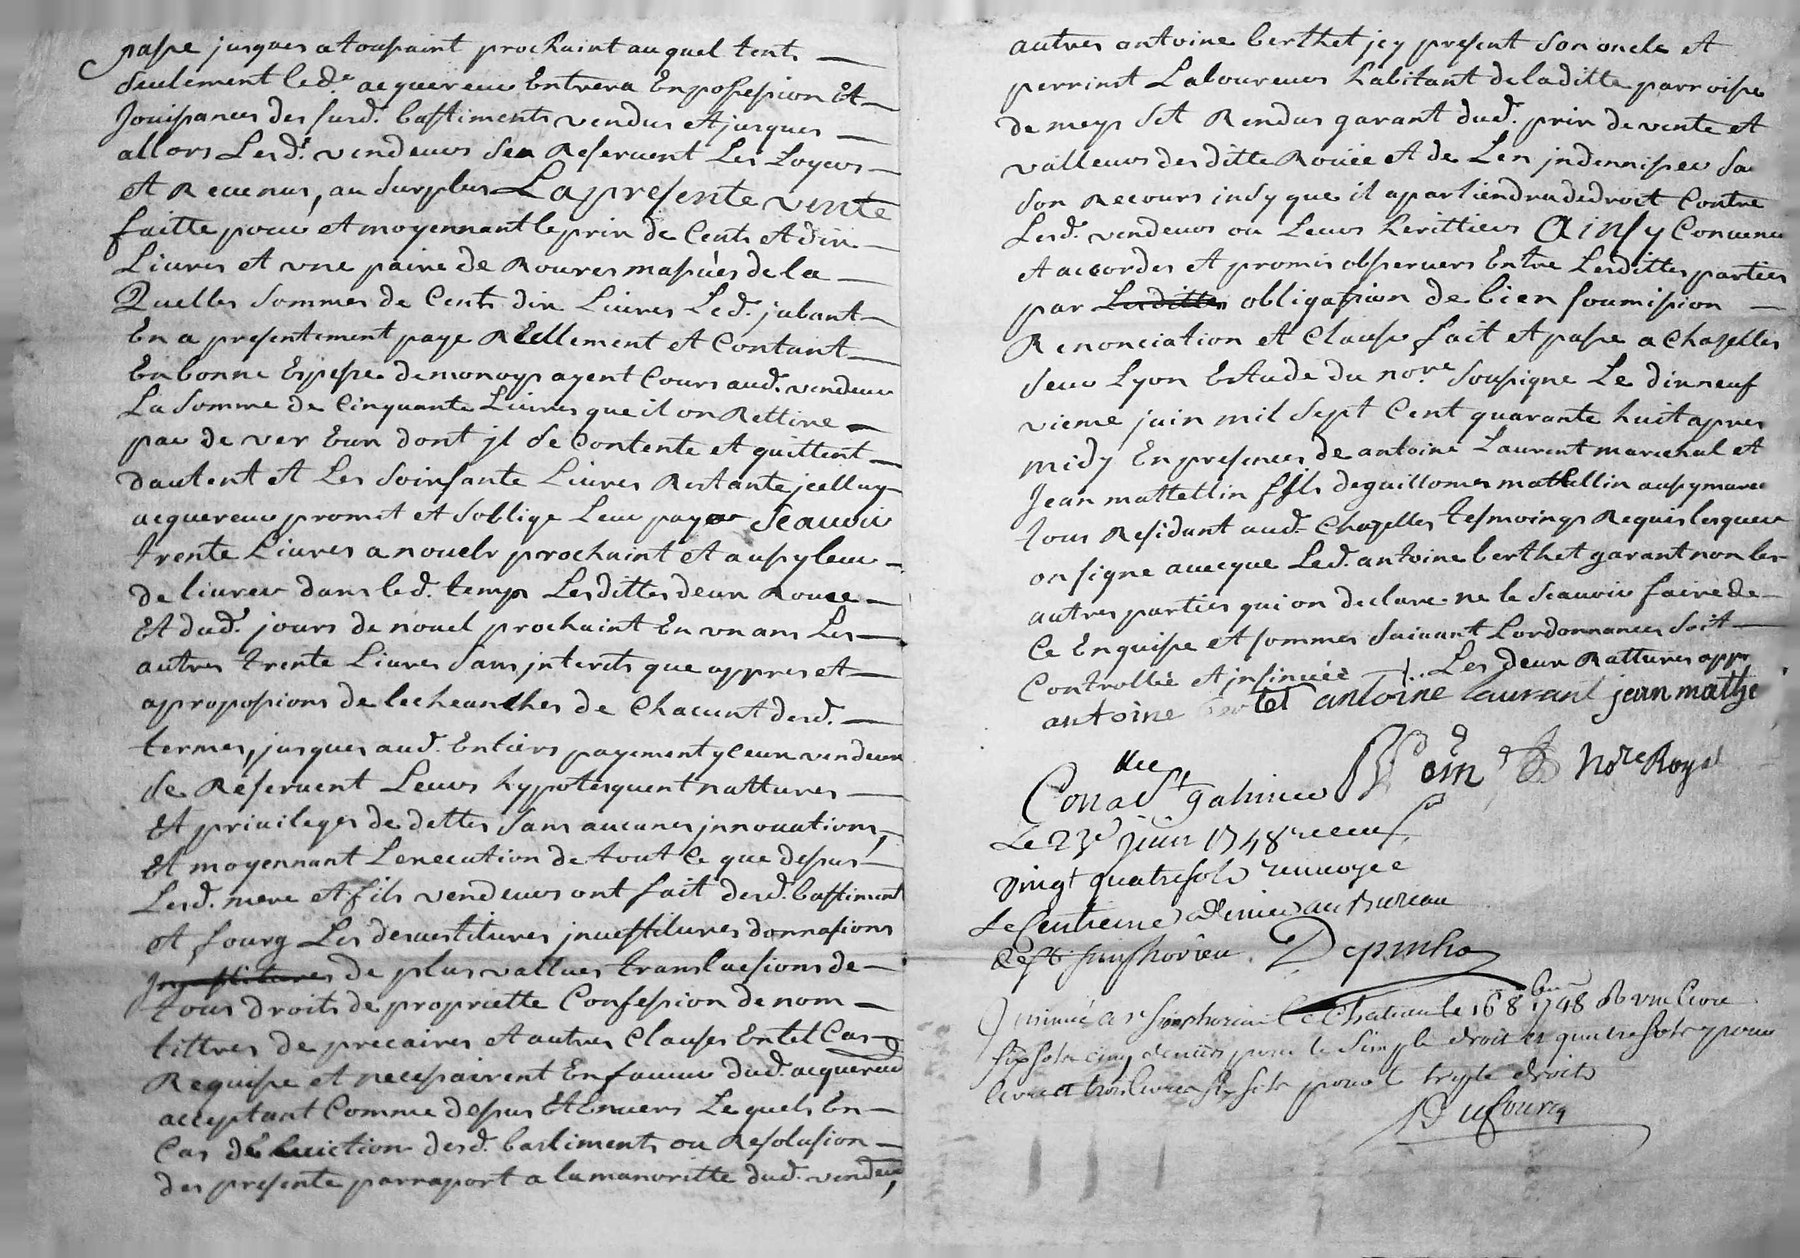 passe jusques a toussaint prochaint auquel tent
seulement led.t acquereur Entrera En possession Et
Jouissances des susd. bastiments vendus et jusques
allors Lesd.s vendeurs sen Reservent Les Loyers
et Revenus, au surplus La presente vente
faitte pour et moyennant le prix de Cents et dix
Livres et une paire de Rouues massuées de la
Quelles sommes de Cents dix Livres Led. jabant
En a presentement paye Reellement et Contant
En bonne Espesse de monoy payent Cours aud. vendeur
La somme de Cinquante Livres que il on Rettire
par de ver Eux dont jl se Contente et quittent
dautent et Les soixsante Livres Restante jcelluy
acquereur promet et soblige Leur payer Scauoir
trente Livres a nouelr prochaint et aussy leur
de liurer dans led. temps Lesdittes deux Rouee
Et dud. jours de nouel prochaint En un ans Les
autres trente Livres sans jnterets que appres et
aproposions de lecheanches de Chacunt desd.
termes, jusques aud. Entiers payement yceux vendeurs
se Reservent Leurs hyppotesquent nattures
Et priuileges de dettes sans aucunes jnnouations,
Et moyennant Lexecution de tout Ce que dessus
Lesd. mere et fils vendeurs ont fait desd. bastiment
et fourg Les deuestitures jnuestitures donnasions
de plus vallues translacsions de
tous droits de propriette Confession de nom
tittres de precaires et autres Clauses En tel Cas
Requisse et necessairent En faueur dud. acquereur
acceptant Comme dessus Et Enuers Lequels En
Cas de Euiction desd. bastiments ou Resolusion
des presente parraport a la manoritte dud. vendeur,
autres antoine berthet jcy present son oncle et
perrinet Laboureurs habitant de la ditte parroisse
de meys s'et Rendus garant dud. prix de vente et
valleurs des ditte Rouée et de Len jndennisser sa
son Recours insy que il apartiendra de droit Contre
Lesd. vendeurs ou Leurs herittiers Ainsy Conuenu
et accordes et promis obsseruers Entre Lesdittes parties
par Lesdittes obligassion de bien soumission
Renonciation et Clause fait et passe a Chazelles
seur Lyon Estude du no.re soussigne Le dixneuf
vieme juin mil sept Cent quarante huit apres
midy En presences de antoine Laurent marechal et
Jean mattellin ffils de guillomes mattellin aussy marec
tous Residant aud. Chazelles tesmoings Requis lesqueux
on signe auecque Led. antoine berthet garant non les
autres parties qui on declare ne le scauoir faire de
Ce Enquisse et sommes suiuant Lordonnances soit
Controllée et jnsinuée Les deux Rattures app.
antoine bertet antoine laurant jean mathe
No.re Royal
Le 23.e juin 1748 receu
vingt quatre sols renuoyee
Le Centieme denier au Bureau
de st simphorien. Depinha
Insinué a s.t Simphorien Le Chateau le 16 8bre 1748 R un livre
six sols cinq deniers pour le simple droit et quatre sols pour
livre et trois livres six sols pour le triple droits
Dufourg